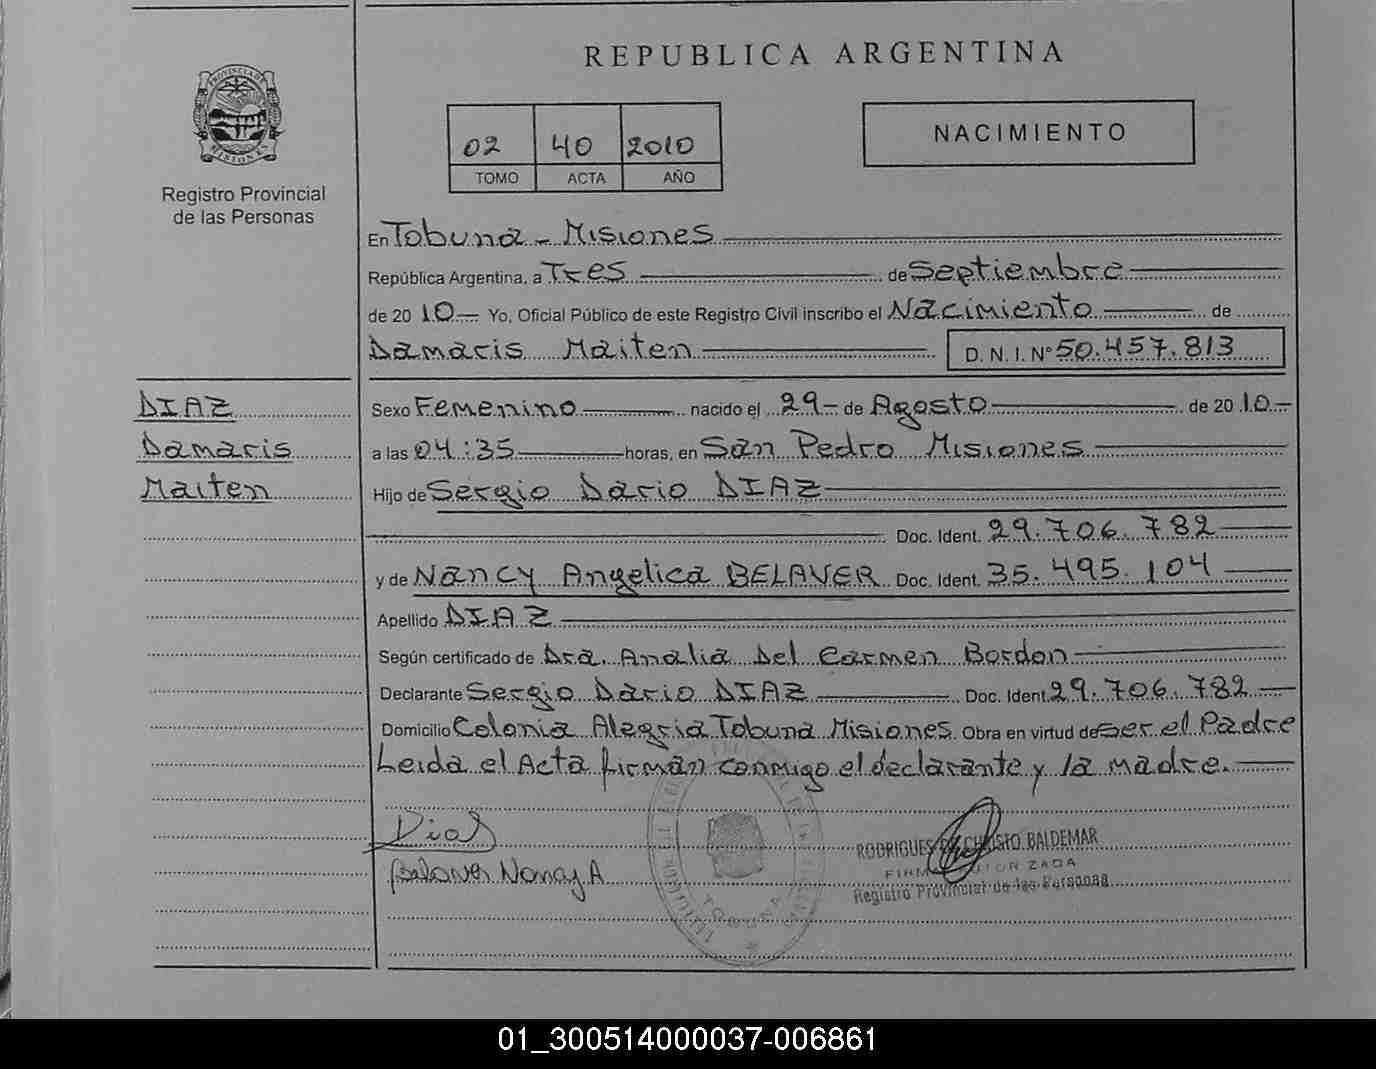 REPUBLICA ARGENTINA
PROVINCIA DE
MISIONES
Registro Provincial
de las Personas
02 40 2010
TOMO ACTA AÑO
NACIMIENTO
En Tobuna - Misiones
República Argentina, a Tres de Septiembre
de 20 10 Yo, Oficial Público de este Registro Civil inscribo el Nacimiento de
Damaris Maiten D. N. I. Nº 50.457.813
DIAZ
Damaris
Maiten
Sexo Femenino nacido el 29 de Agosto de 20 10
a las 04:35 horas, en San Pedro Misiones
Hijo de Sergio Dario DIAZ
Doc. Ident. 29.706.782
y de Nancy Angelica BELAVER Doc. Ident. 35.495.104
Apellido DIAZ
Según certificado de Dra. Analia Del Carmen Bordon
Declarante Sergio Dario DIAZ Doc. Ident. 29.706.782
Domicilio Colonia Alegria Tobuna Misiones. Obra en virtud de ser el Padre
Leida el Acta firman conmigo el declarante y la madre.
Dias
Belaver Nancy A
TOBUNA
RODRIGUES BALDEMAR
FIRMA AUTORIZADA
Registro Provincial de las Personas
01_300514000037-006861